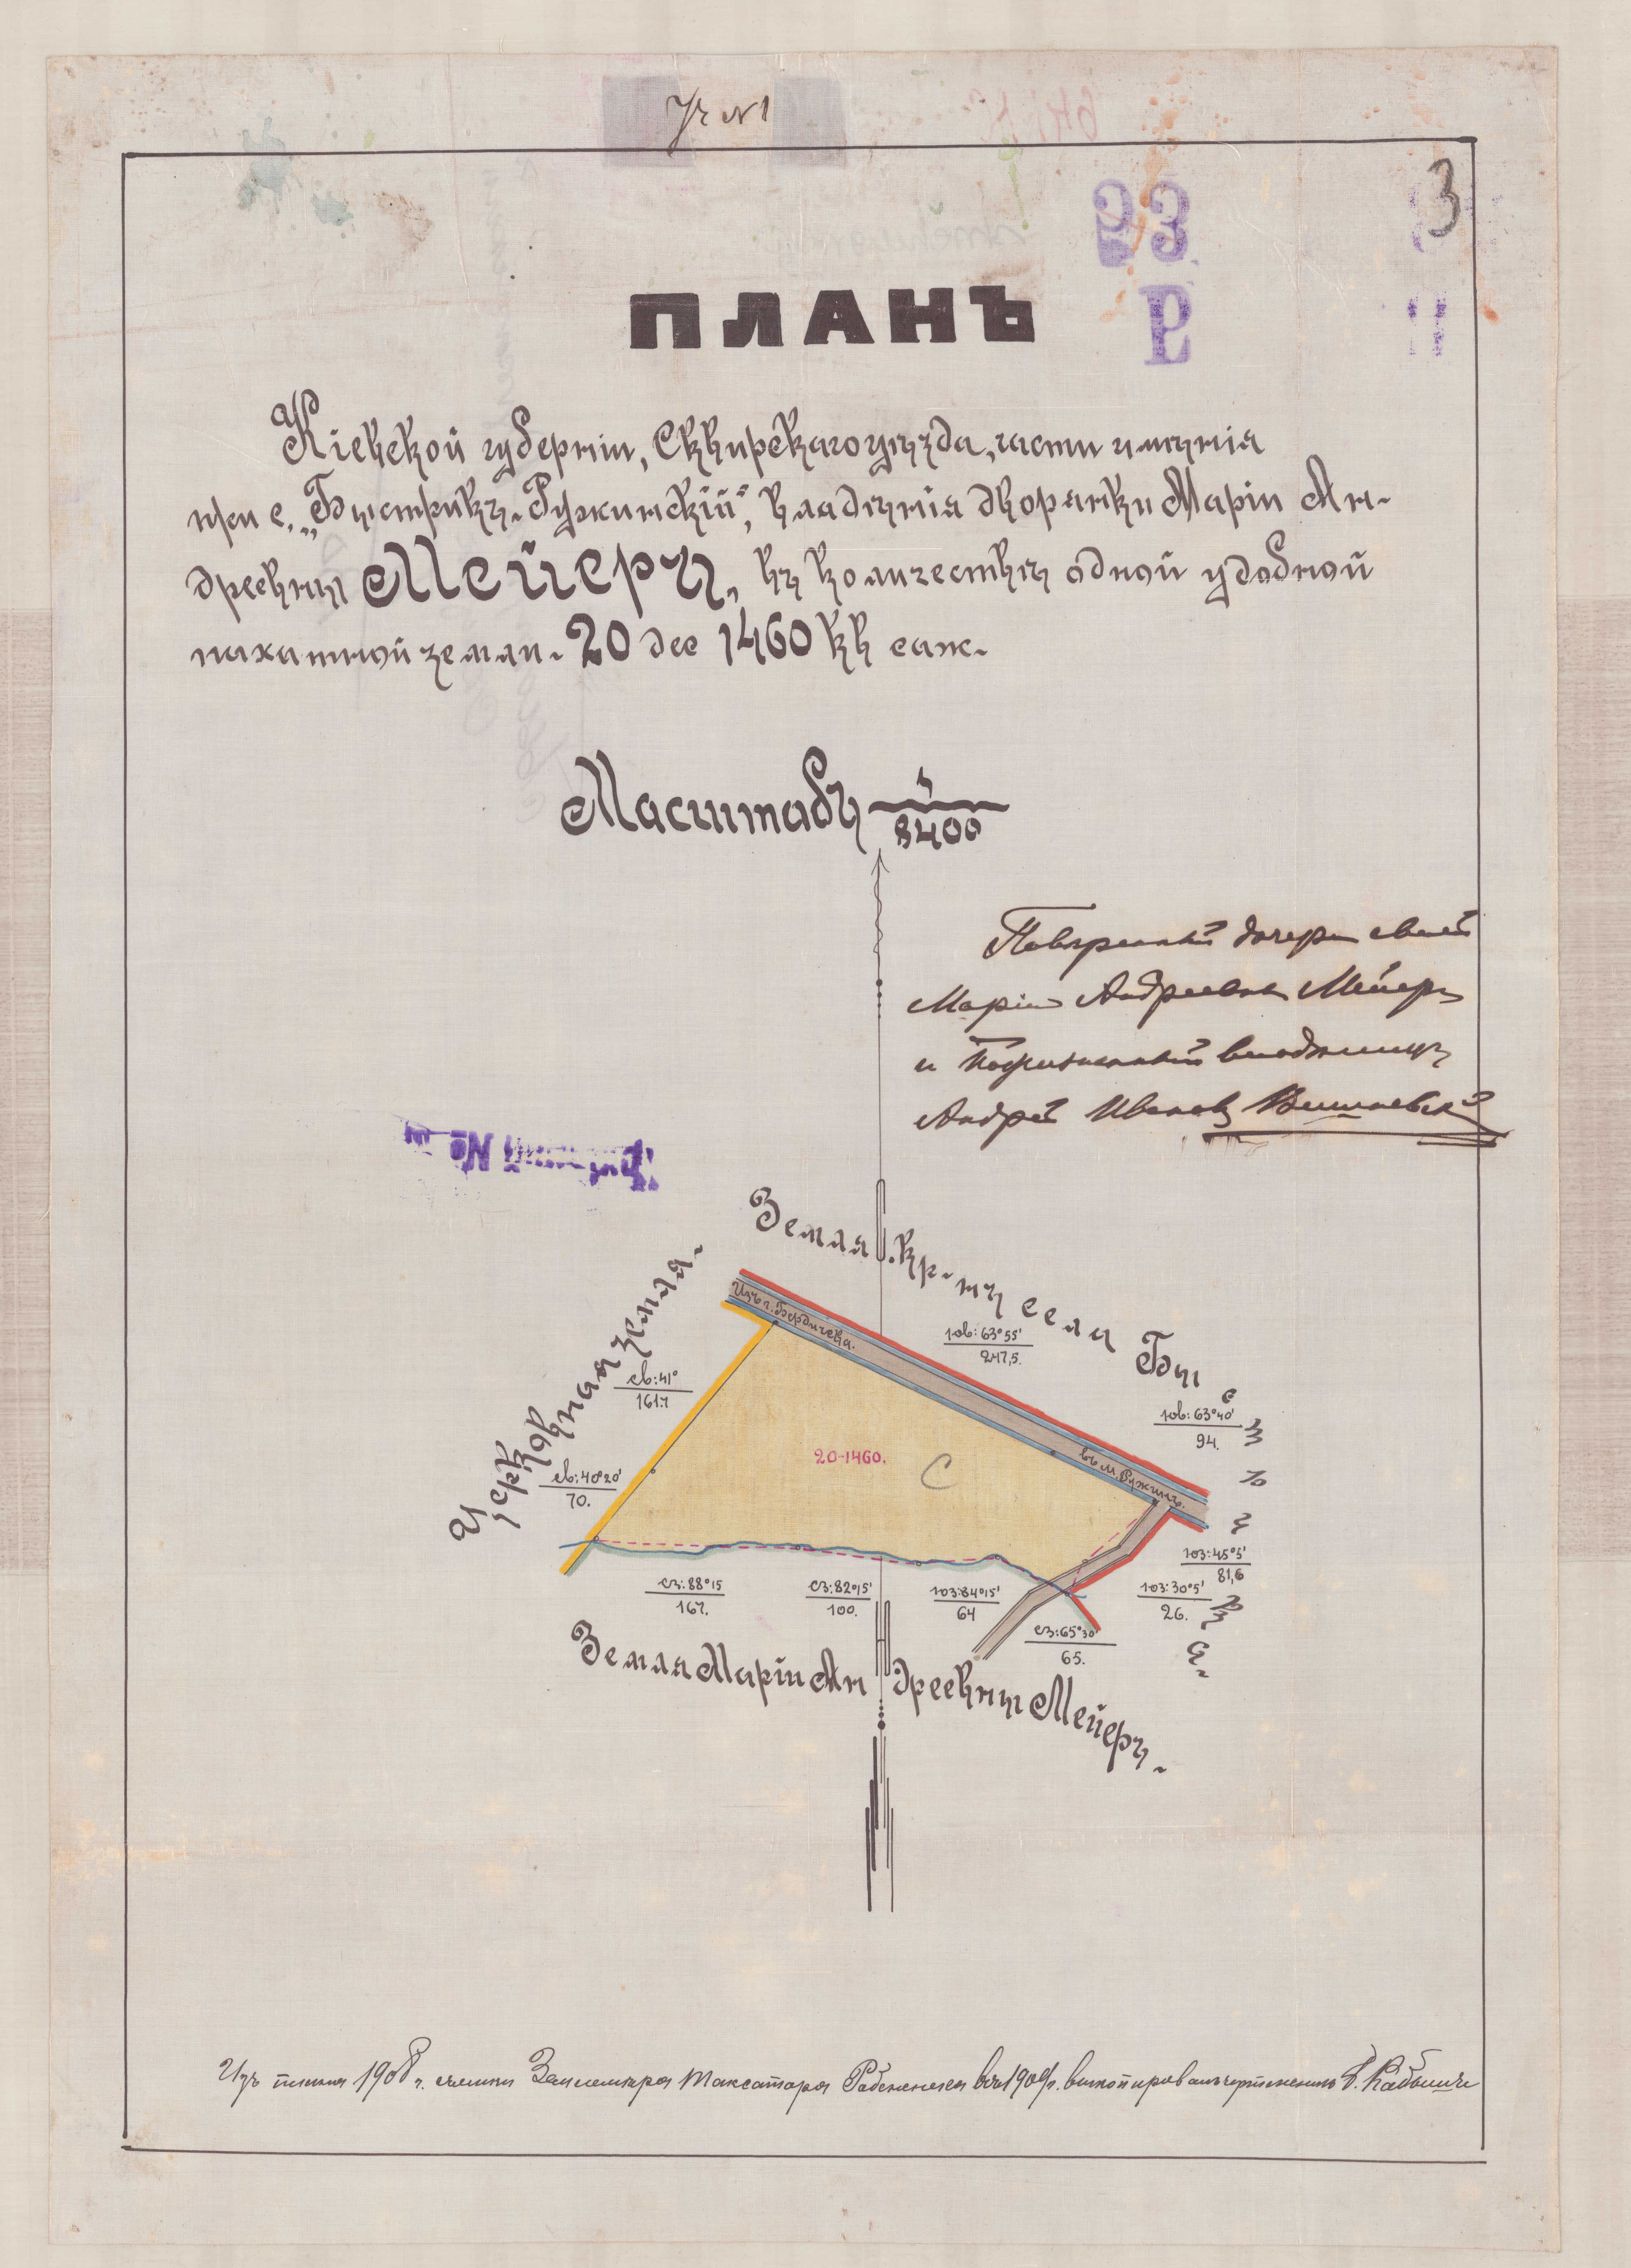 Уч №1
3
ПЛАНЪ
Кіевской губерніи, Сквирскаго уѣзда, части имѣнія
при с. „Быстрикъ-Ружинскій", владѣнія дворянки Маріи Ан-
дреевны Мейеръ, въ количествѣ одной удобной
пахатной земли- 20 дес 1460 кв саж.
Масштабъ 1/8400
Повѣренный дочери своей
Маріи Андреевны Мейеръ
и
Андрей Ивановъ Вишневскій
Земля кр-нъ села Быстрика.
Церковная земля.
Изъ г. Бердичева.
въ м. Ружинъ.
юв: 63°55'
247,5.
юв: 63°40'
94.
св: 41°
161.7
св: 40°20'
70.
20-1460.
С
юз: 45°5'
81,6
юз: 30°5'
26.
сз: 88°15
167.
сз: 82°15'
100.
юз: 84°15'
64
сз: 65°30'
65.
Земля Маріи Андреевны Мейеръ.
Изъ плана 1908 г. съемки Землемѣра Таксатора въ 1909 г. выкопировалъ чертежникъ